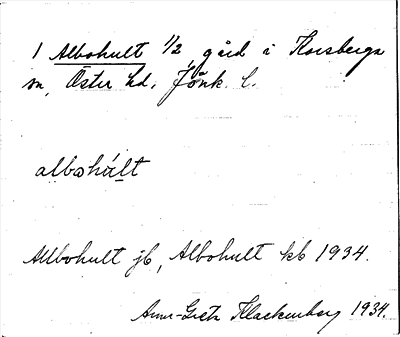 1 Albohult 1/2 gård i Korsberga
sn, Öster hd, Jönk. l.
albohúlt
Allbohult jb, Albohult kb 1934.
Anna-Greta Klackenberg 1934.